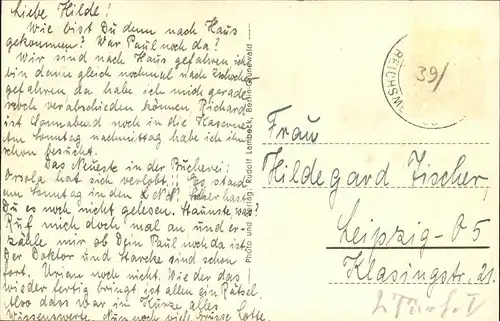 Liebe Hilde!
Wie bist Du denn nach Haus
gekommen? War Paul noch da?
Wir sind nach Haus gefahren ich
bin dann gleich nochmal nach
gefahren da habe ich mich gerade
noch verabschieden können, Richard
ist Sonnabend noch in die Kaserne
Am Sonntag nachmittag habe ich ihn
schon besucht.
Das Neueste in der Bücherei:
Orsolga hat sich verlobt!! Es stand
am Sonntag in den L.N.N. hast
Du es noch nicht gelesen. Staunste was?
Ruf mich doch mal an und er-
zähle mir ob Dein Paul noch da ist
Der Doktor und Starcke sind schon
fort. Urian noch nicht. Wie der das
wieder fertig bringt ist allen ein Rätsel.
Also dass war im Kürze alles
Wissenswerte. Nun noch viele Grüsse Lotte.
Photo und Verlag: Rudolf Lambeck, Berlin-Grunewald
REICHSM
39/
Frau
Hildegard Fischer,
Leipzig-O5
Klasingstr. 21.